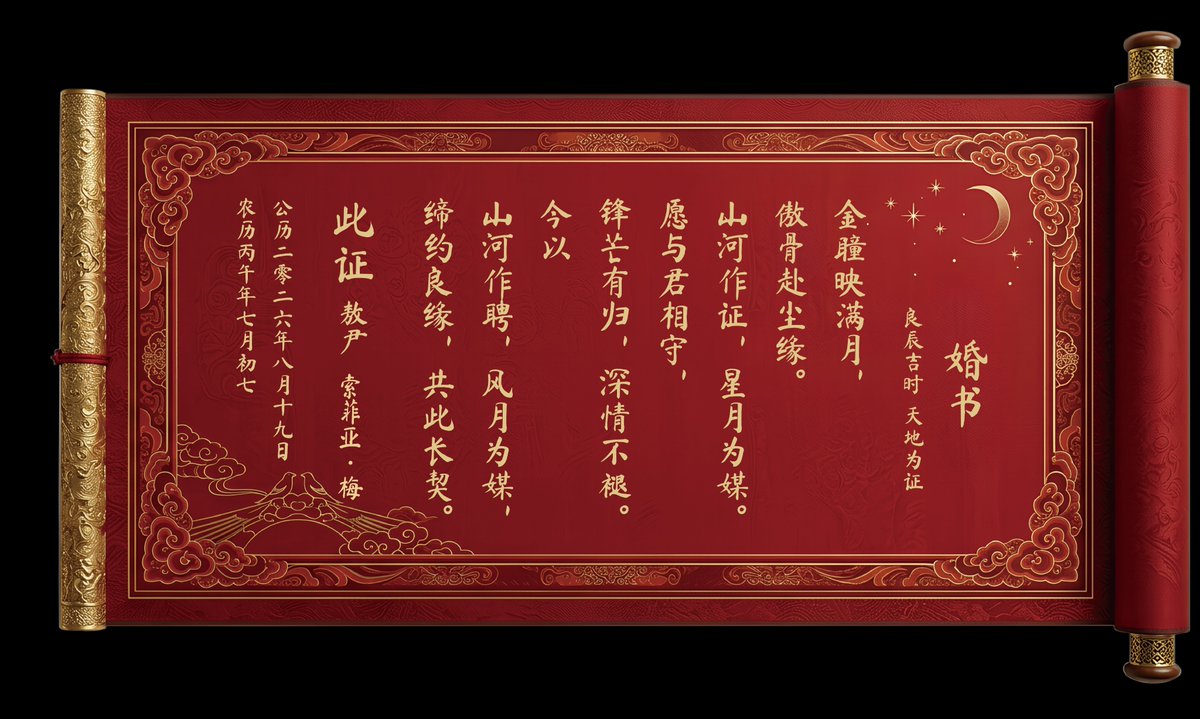 婚书
良辰吉时 天地为证
金瞳映满月，
傲骨赴尘缘。
山河作证，星月为媒。
愿与君相守，
锋芒有归，深情不褪。
今以
山河作聘，风月为媒，
缔约良缘，共此长契。
此证 敖尹 索菲亚·梅
公历二零二六年八月十九日
农历丙午年七月初七